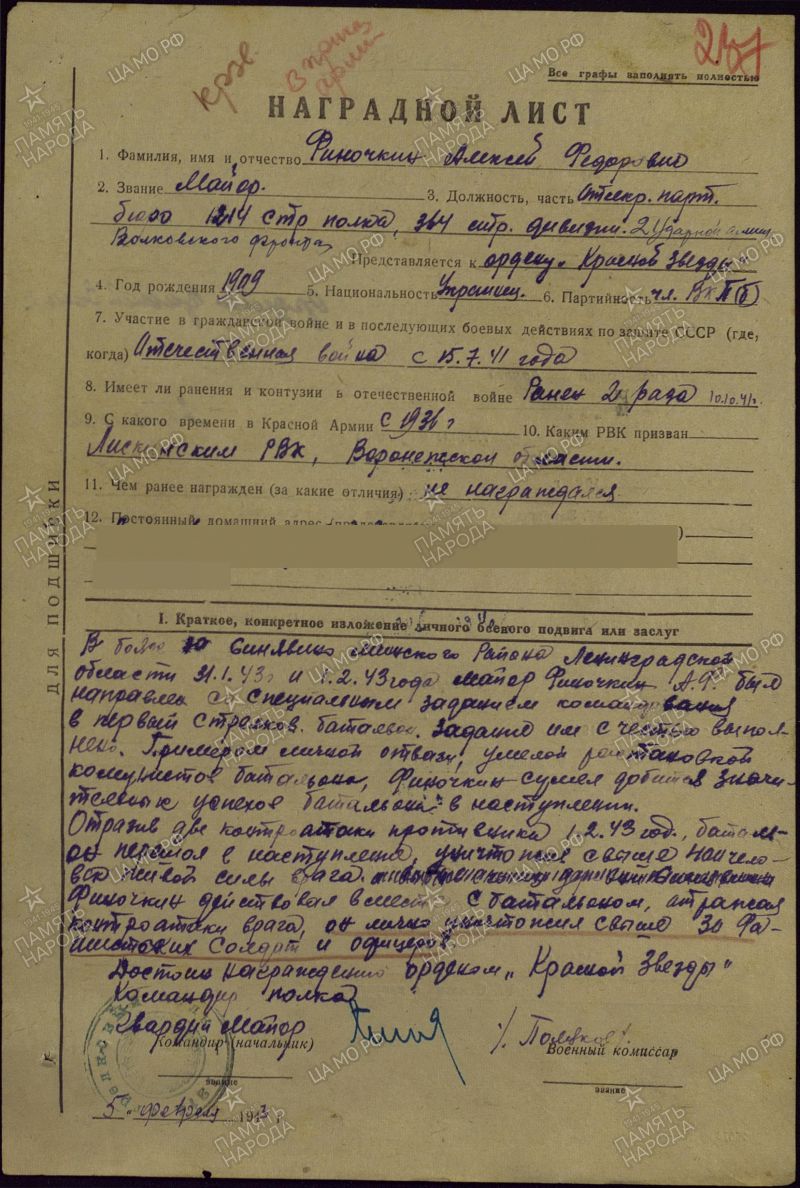 247
Все графы заполнять полностью
НАГРАДНОЙ ЛИСТ
1. Фамилия, имя и отчество Финочкин Алексей Федорович
2. Звание Майор. 3. Должность, часть Отсекр. парт.
бюро 1214 стр полка, 364 стр. дивизии. 2 Ударной армии
Волховского фронта
Представляется к ордену „Красной Звезды"
4. Год рождения 1909 5. Национальность Украинец. 6. Партийность чл. ВКП(б)
7. Участие в гражданской войне и в последующих боевых действиях по защите СССР (где,
когда) Отечественная война с 15.7.41 года
8. Имеет ли ранения и контузии в отечественной войне Ранен 2 раза 10.10.41г.
9. С какого времени в Красной Армии с 1936 г 10. Каким РВК призван
Лискинским РВК, Воронежской области.
11. Чем ранее награжден (за какие отличия) не награждался
12. Постоянный домашний адрес )
ДЛЯ ПОДШИВКИ
I. Краткое, конкретное изложение личного боевого подвига или заслуг
В боях Синявино Мгинского Района Ленинградской
области 31.1.43г и 1.2.43 года майор Финочкин А.Ф. был
направлен со специальным заданием командования
в первый стрелков. батальон. Задание им с честью выпол-
нено. Примером личной отваги, умелой расстановкой
комунистов батальона, Финочкин сумел добится значи-
тельных успехов батальона в наступлении.
Отразив две контратаки противника 1.2.43 год., баталь-
он перешол в наступление, уничтожив свыше чело-
век живой силы врага.
Финочкин действовал вместе с батальоном, отражая
контроатаки врага, он лично уничтожил свыше 30 Фа-
шистских солдат и офицеров.
Достоин награждению орденом „Красной Звезды"
Командир полка
Гвардии Майор
Командир (начальник)
Военный комиссар
звание
звание
5 февраля 1943 г
ПАМЯТЬ НАРОДА
ЦА МО РФ
1941-1945